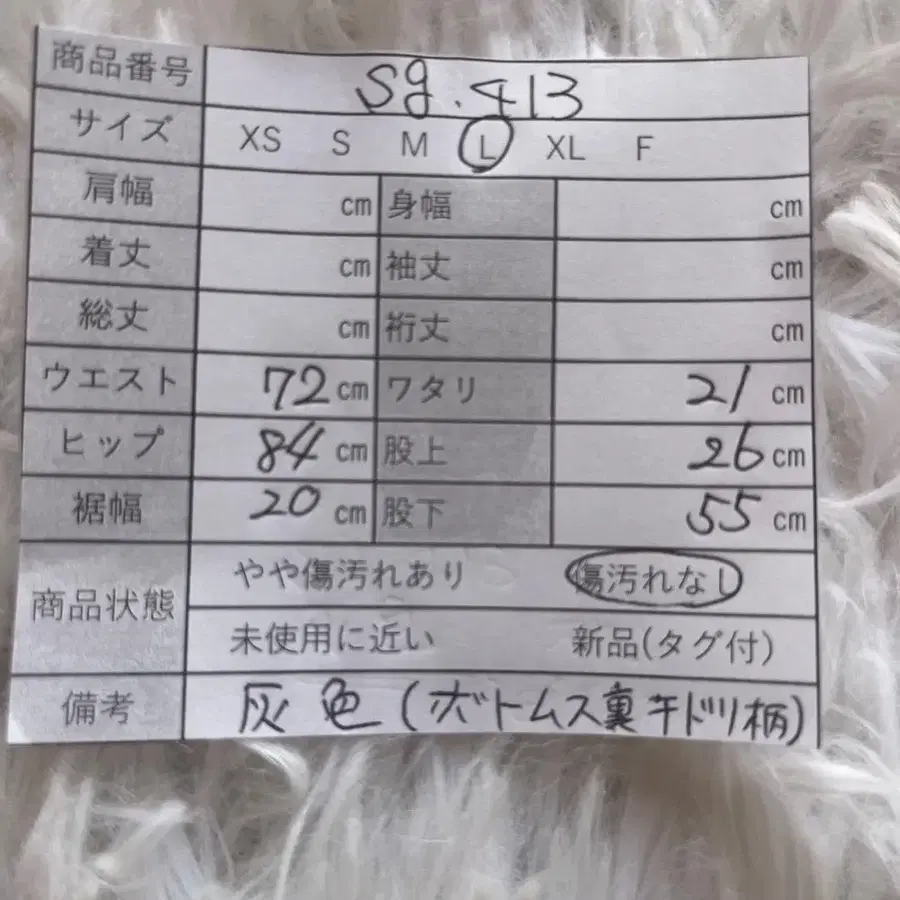 商品番号 sg.413
サイズ XS S M L XL F
肩幅 cm 身幅 cm
着丈 cm 袖丈 cm
総丈 cm 裄丈 cm
ウエスト 72cm ワタリ 21cm
ヒップ 84cm 股上 26cm
裾幅 20cm 股下 55cm
商品状態 やや傷汚れあり 傷汚れなし
未使用に近い 新品(タグ付)
備考 灰色(ボトムス裏千ドリ柄)